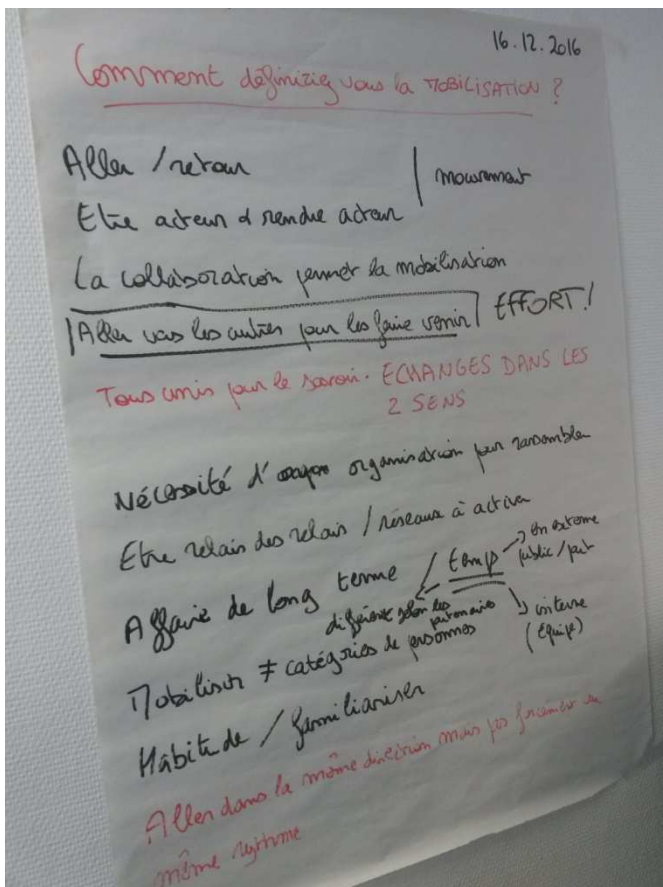 16.12.2016
Comment définiriez vous la MOBILISATION ?
Aller / retour
mouvement
Etre acteur & rendre acteur
La collaboration permet la mobilisation
Aller vers les autres pour les faire venir EFFORT !
Tous unis pour le savoir. ECHANGES DANS LES
2 SENS
Nécessité d' organisation pour rassembler
Etre relais des relais / réseaux à activer
Affaire de long terme / temps → en externe
public / part
différente selon les
partenaires
interne
(équipe)
Mobiliser ≠ catégories de personnes
Habitude / familiariser
Aller dans la même direction mais pas forcément au
même rythme